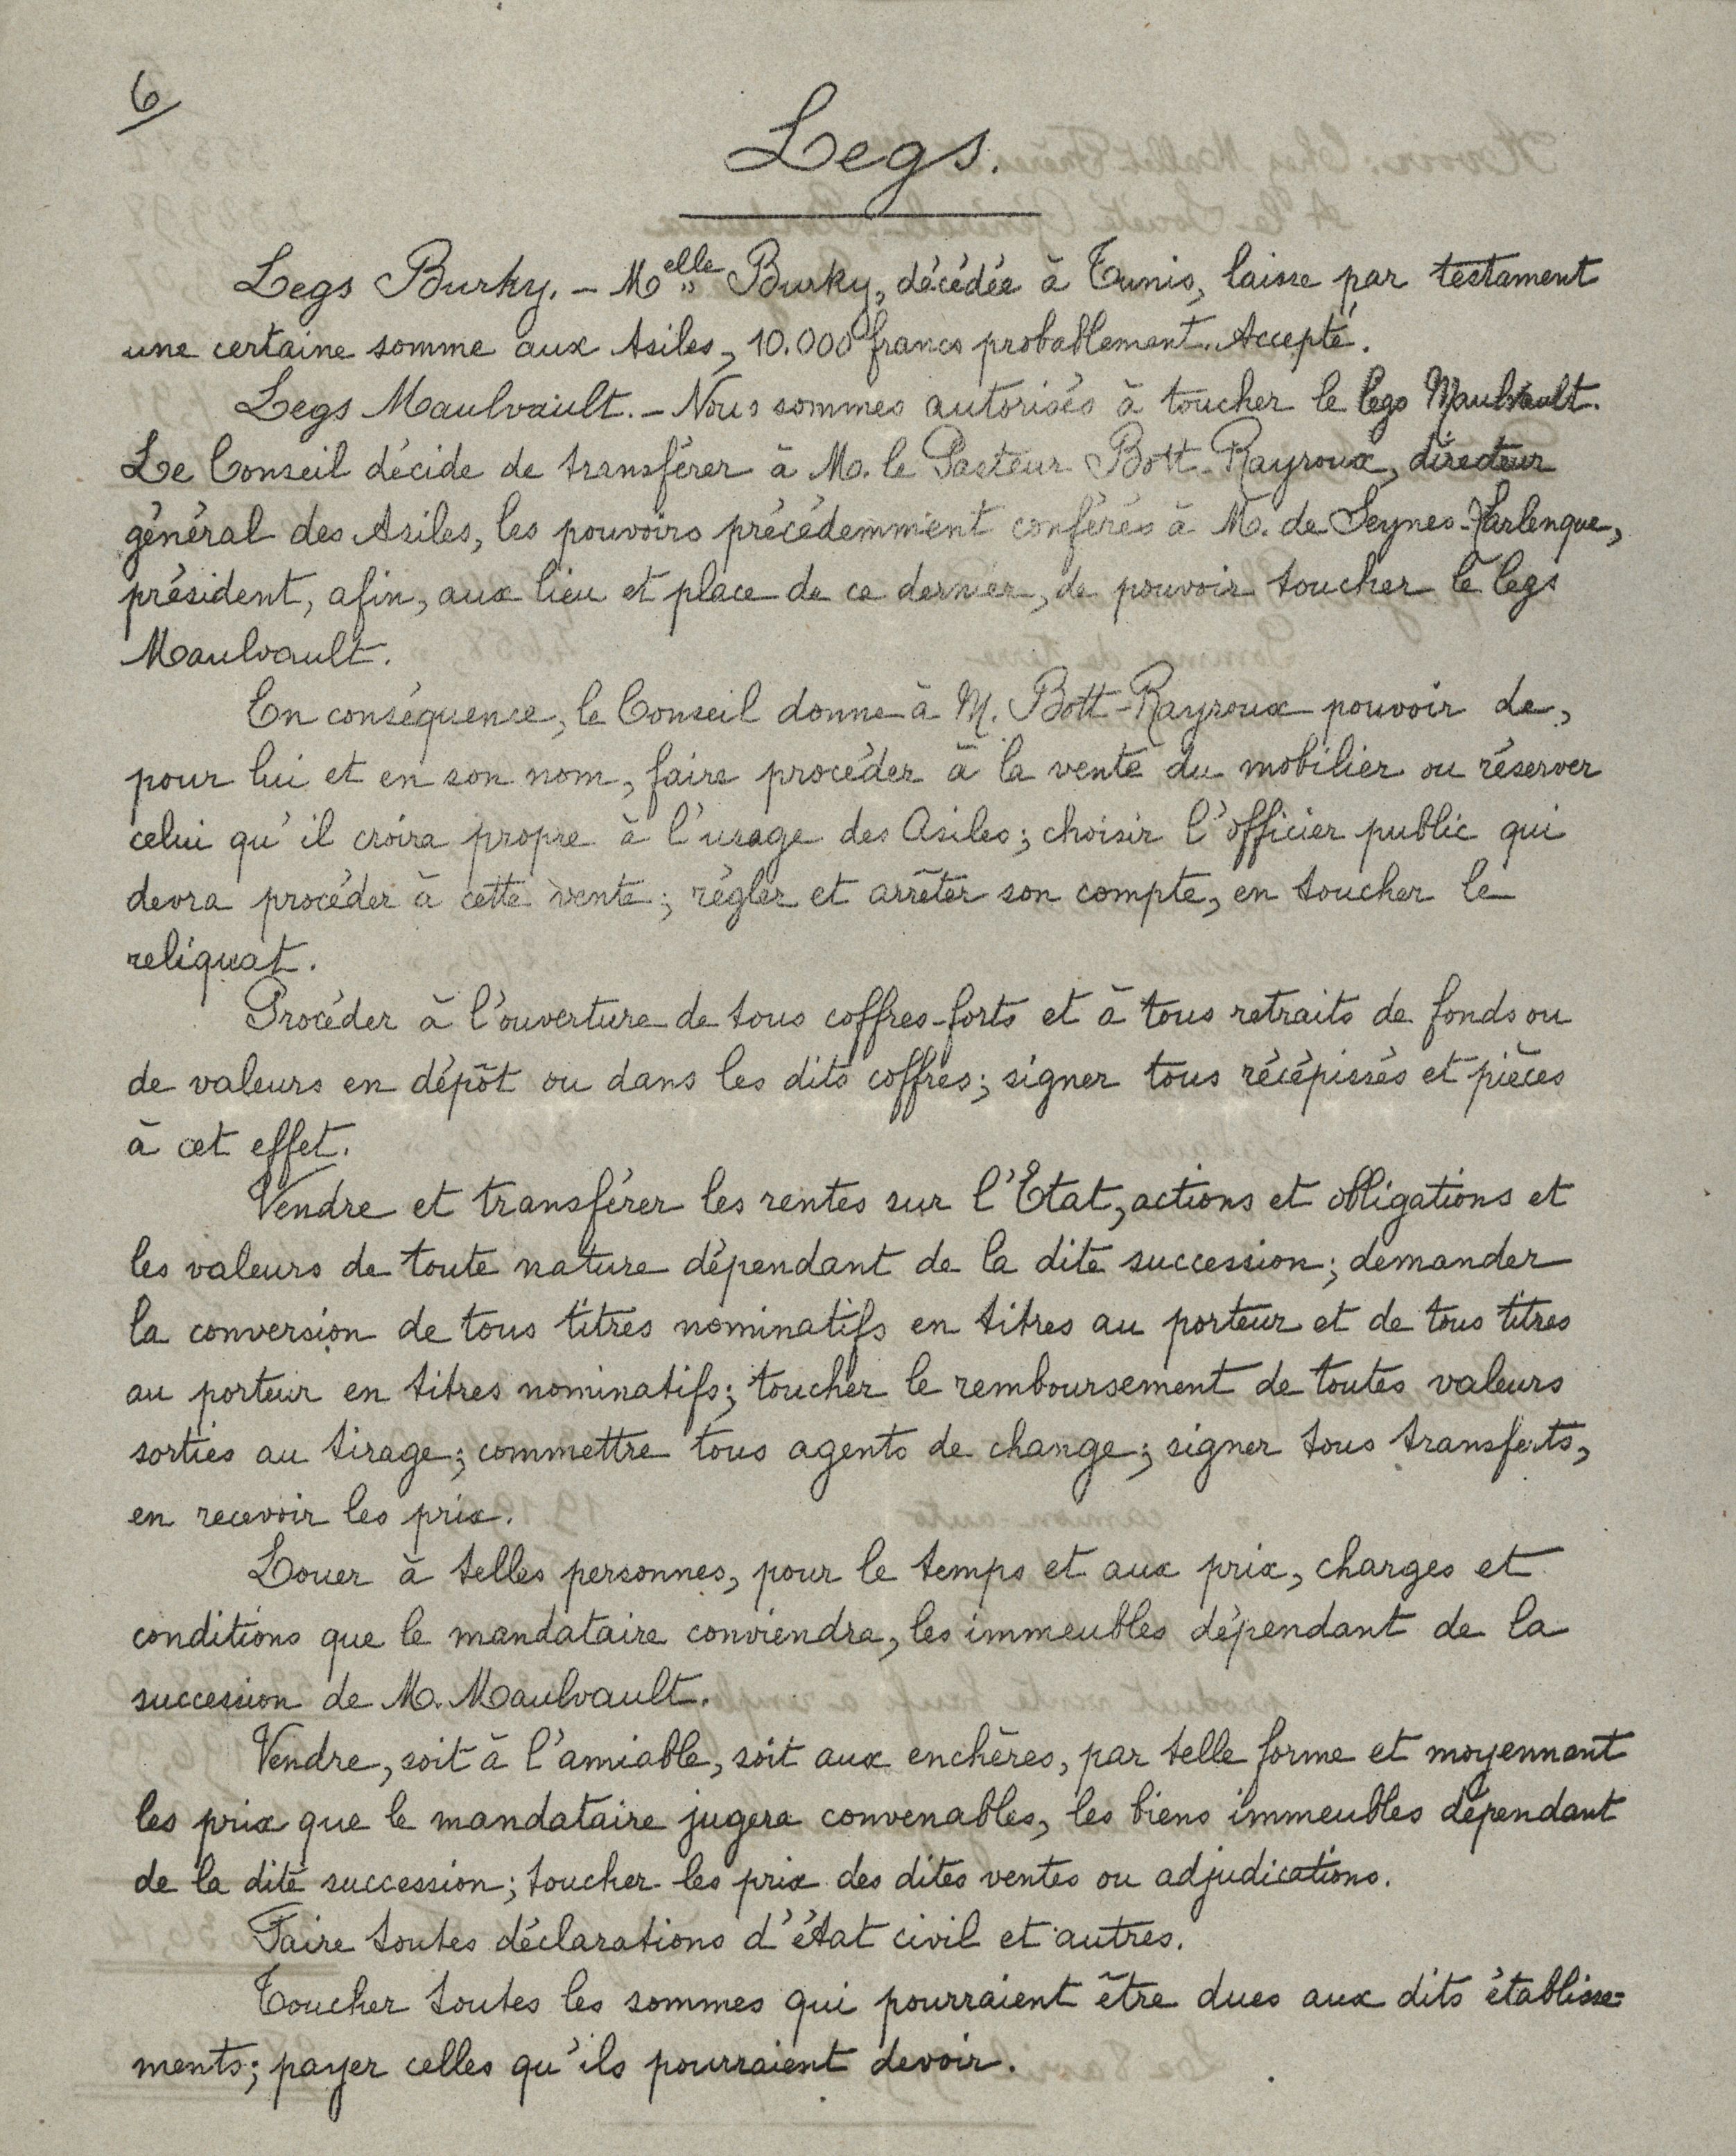 6
Legs.
Legs Burky. – Melle Burky, décédée à Tunis, laisse par testament
une certaine somme aux Asiles, 10.000 francs probablement. Accepté.
Legs Maulvault. – Nous sommes autorisés à toucher le legs Maulvault.
Le Conseil décide de transférer à M. le Pasteur Bott-Rayroux, directeur
général des Asiles, les pouvoirs précédemment conférés à M. de Seynes-Larlenque,
président, afin, aux lieu et place de ce dernier, de pouvoir toucher le legs
Maulvault.
En conséquence, le Conseil donne à M. Bott-Rayroux pouvoir de,
pour lui et en son nom, faire procéder à la vente du mobilier ou réserver
celui qu'il croira propre à l'usage des Asiles; choisir l'officier public qui
devra procéder à cette vente; régler et arrêter son compte, en toucher le
reliquat.
Procéder à l'ouverture de tous coffres-forts et à tous retraits de fonds ou
de valeurs en dépôt ou dans les dits coffres; signer tous récépissés et pièces
à cet effet.
Vendre et transférer les rentes sur l'Etat, actions et obligations et
les valeurs de toute nature dépendant de la dite succession; demander
la conversion de tous titres nominatifs en titres au porteur et de tous titres
au porteur en titres nominatifs; toucher le remboursement de toutes valeurs
sorties au tirage; commettre tous agents de change; signer tous transferts,
en recevoir les prix.
Louer à telles personnes, pour le temps et aux prix, charges et
conditions que le mandataire conviendra, les immeubles dépendant de la
succession de M. Maulvault.
Vendre, soit à l'amiable, soit aux enchères, par telle forme et moyennant
les prix que le mandataire jugera convenables, les biens immeubles dépendant
de la dite succession; toucher les prix des dites ventes ou adjudications.
Faire toutes déclarations d'état civil et autres.
Toucher toutes les sommes qui pourraient être dues aux dits établisse=
ments; payer celles qu'ils pourraient devoir.